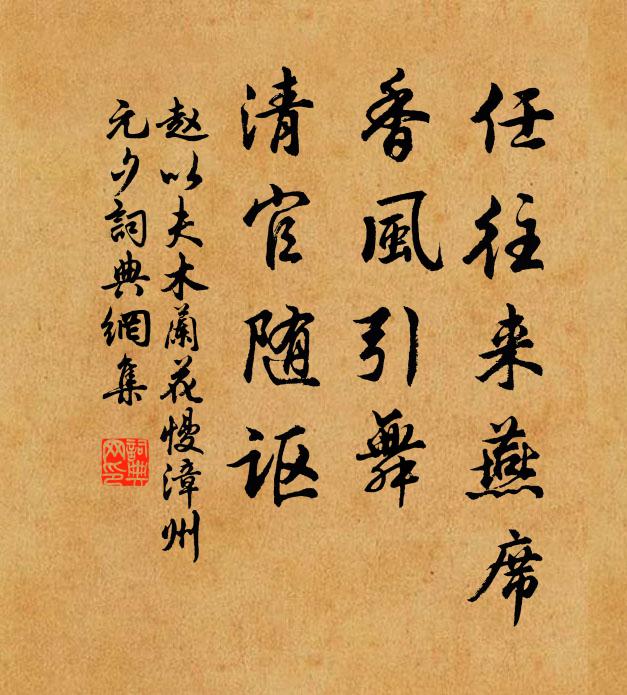 任往来燕席
香風引舞
清官随讴
赵以夫木蘭花慢漳州
元夕詞典網集
詞典
网印